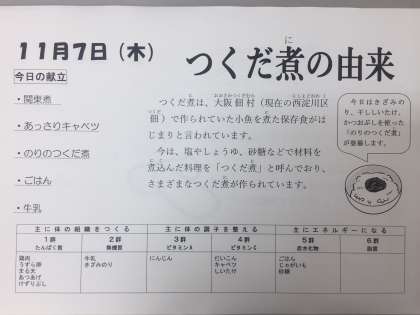 11月7日（木）
つくだ煮の由来
に
今日の献立
・関東煮
・あっさりキャベツ
・のりのつくだ煮
・ごはん
・牛乳
つくだ煮は、大阪佃村（現在の西淀川区
佃）で作られていた小魚を煮た保存食がは
じまりと言われています。
今は、塩やしょうゆ、砂糖などで材料を
煮込んだ料理を「つくだ煮」と呼んでおり、
さまざまなつくだ煮が作られています。
今日はきざみの
り、干ししいたけ、
かつおぶしを使った
「のりのつくだ煮」
が登場します。
主に体の組織をつくる
主に体の調子を整える
主にエネルギーになる
1群 2群 3群 4群 5群 6群
たんぱく質 無機質 ビタミンA ビタミンC 炭水化物 脂質
鶏肉 牛乳 にんじん だいこん ごはん
うずら卵 きざみのり キャベツ じゃがいも
まる天 しいたけ 砂糖
あつあげ
けずりぶし